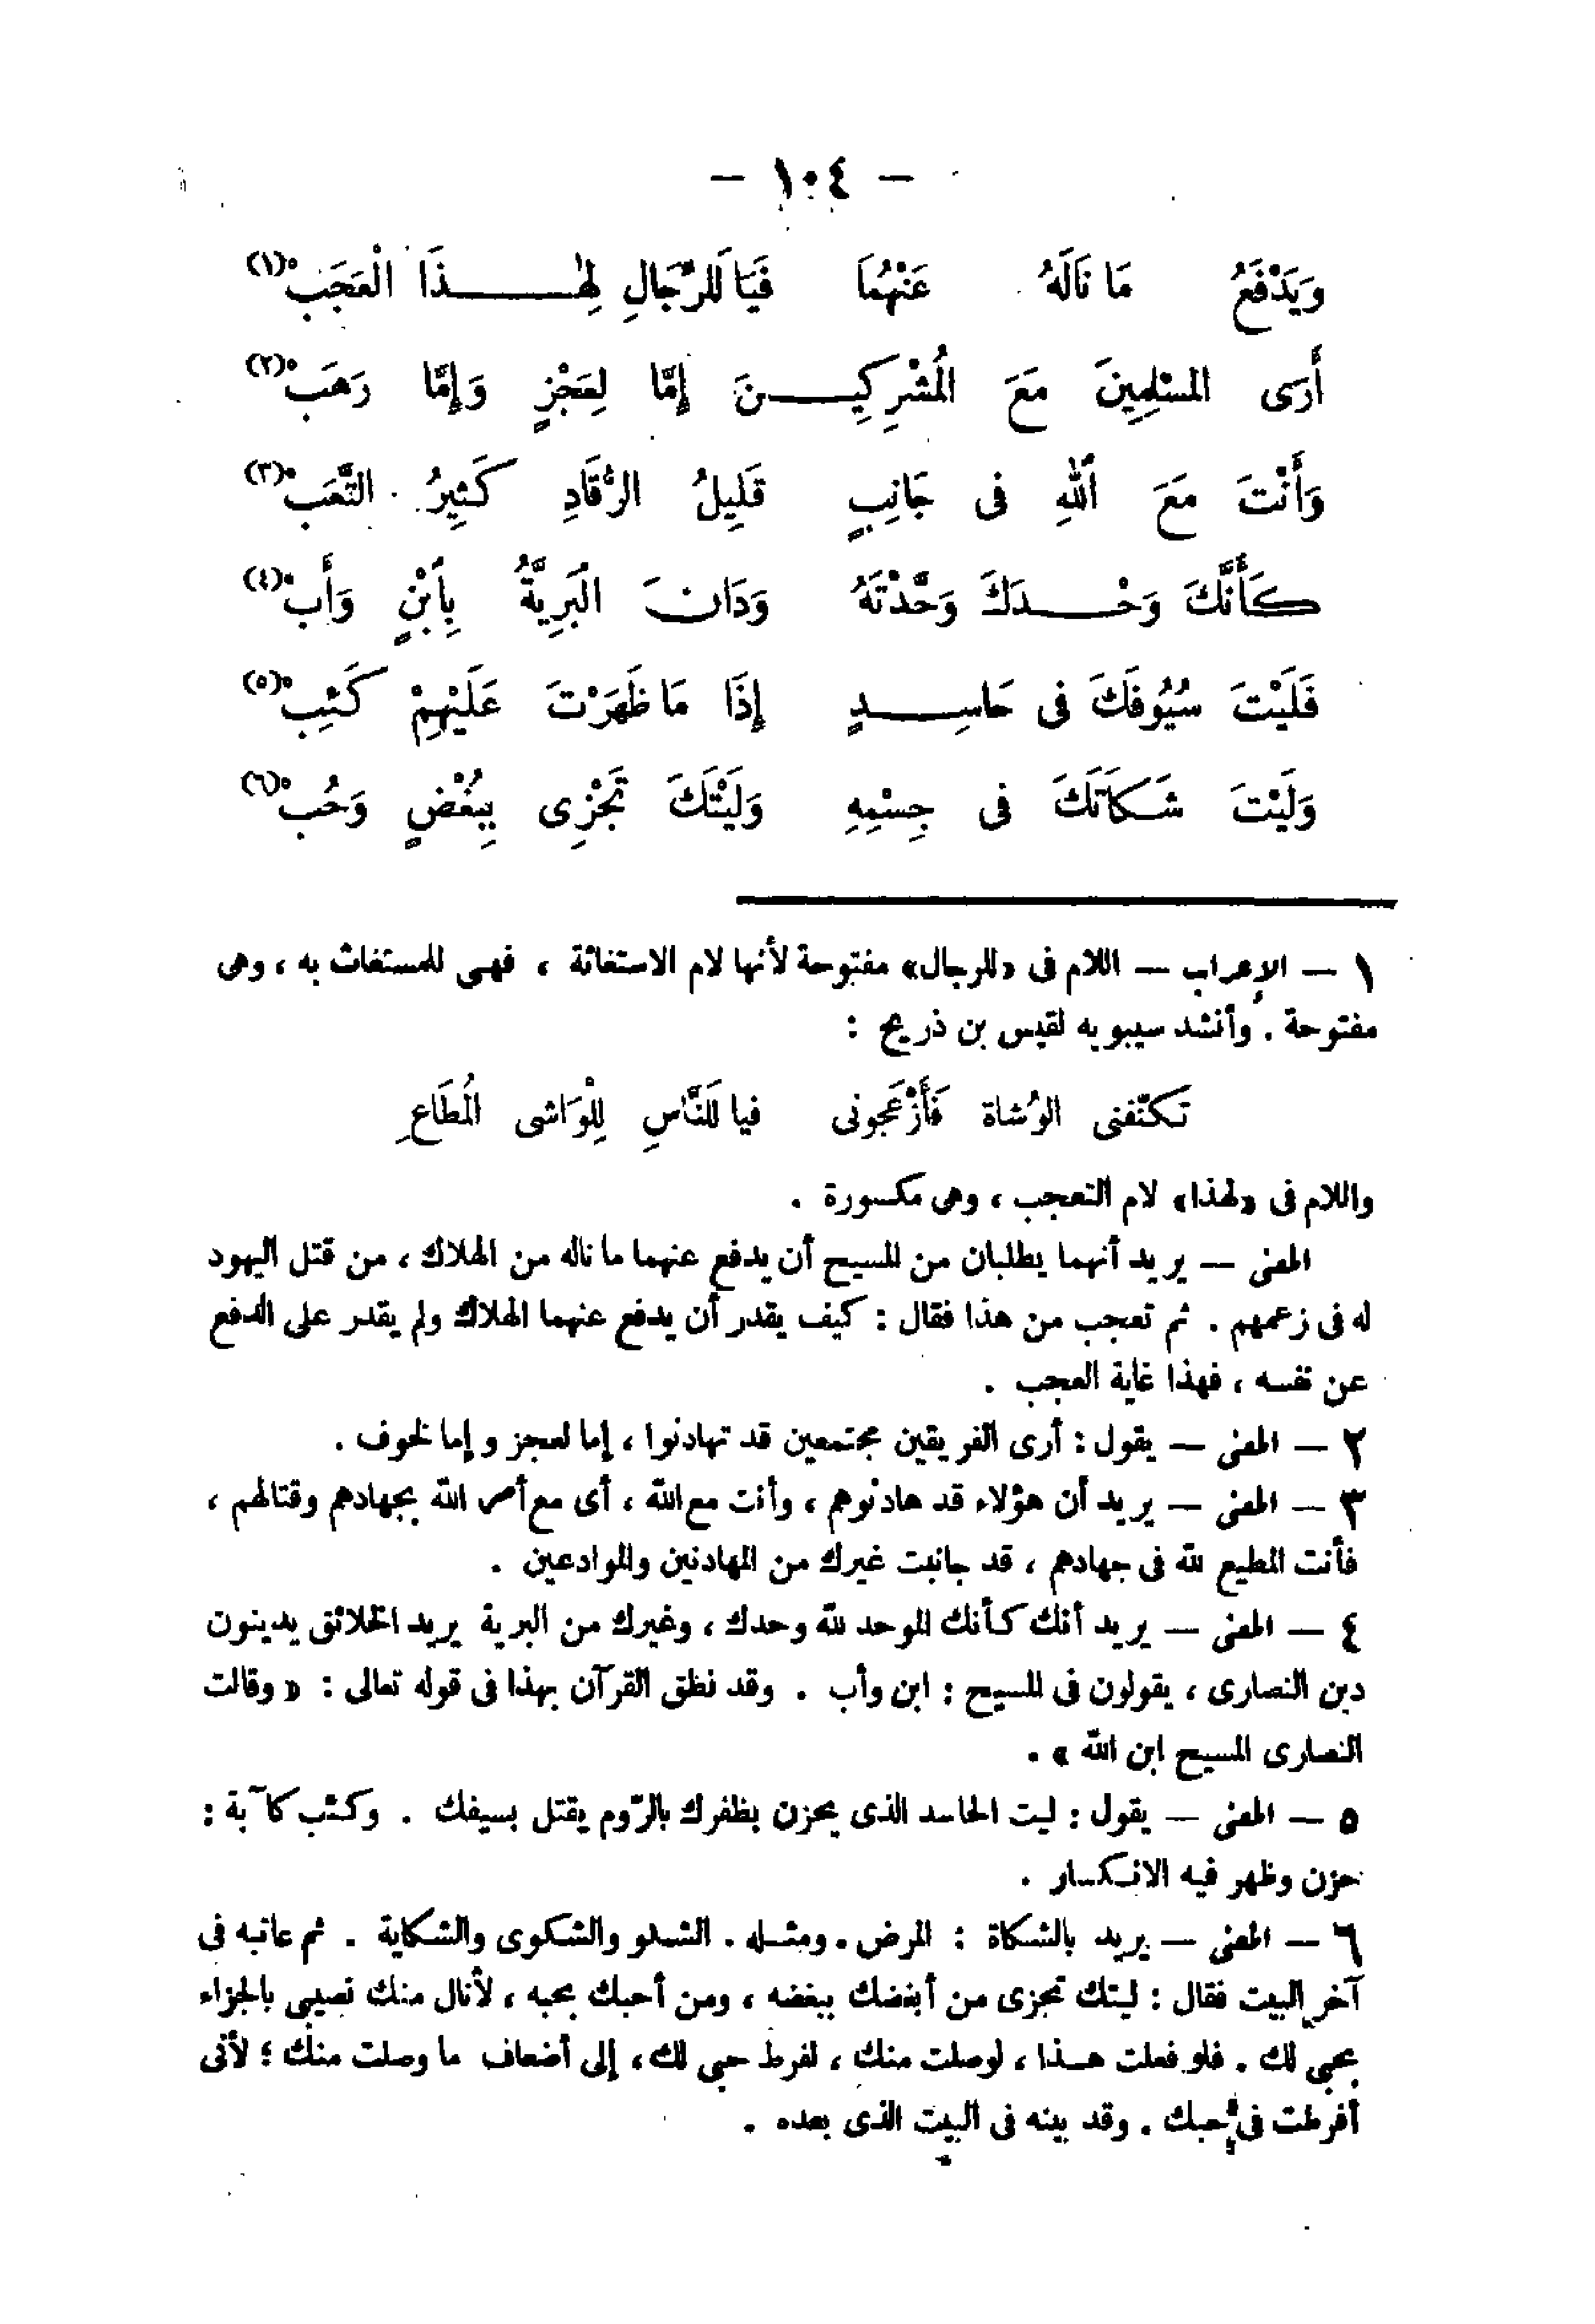 — ١٠٤ —
وَيَدْفَعُ مَا نَالَهُ عَنْهُمَا فَيَا لَلرِّجَالِ لِهٰذَا الْعَجَبْ (١)
أَرَى المسْلِمِينَ مَعَ الْمُشْرِكِينَ إِمَّا لِعَجْزٍ وَإِمَّا رَهَبْ (٢)
وَأَنْتَ مَعَ اللهِ فى جَانِبٍ قَلِيلُ الرُّقَادِ كَثِيرُ التَّعَبْ (٣)
كَأَنَّكَ وَحْدَكَ وَحَّدْتَهُ وَدَانَ الْبَرِيَّةُ بِابْنٍ وَأَبْ (٤)
فَلَيْتَ سُيُوفَكَ فى حَاسِدٍ إِذَا مَا ظَهَرْتَ عَلَيْهِمْ كَئِبْ (٥)
وَلَيْتَ شَكَاتَكَ فى جِسْمِهِ وَلَيْتَكَ تَجْزِى بِبُغْضٍ وَحُبْ (٦)
١ — الإعراب — اللام فى «للرجال» مفتوحة لأنها لام الاستغاثة ، فهى للمستغاث به ، وهى
مفتوحة . وأنشد سيبويه لقيس بن ذريح :
تَكنّفنى الوُشاة فَأَزْعَجونى فيا لَلنَّاسِ لِلْوَاشى الْمُطَاعِ
واللام فى «لهذا» لام التعجب ، وهى مكسورة .
المعنى — يريد أنهما يطلبان من المسيح أن يدفع عنهما ما ناله من الهلاك ، من قتل اليهود
له فى زعمهم . ثم تعجب من هذا فقال : كيف يقدر أن يدفع عنهما الهلاك ولم يقدر على الدفع
عن نفسه ، فهذا غاية العجب .
٢ — المعنى — يقول : أرى الفريقين مجتمعين قد تهادنوا ، إما لعجز وإما لخوف .
٣ — المعنى — يريد أن هؤلاء قد هادنوهم ، وأنت مع الله ، أى مع أمر الله بجهادهم وقتالهم ،
فأنت المطيع لله فى جهادهم ، قد جانبت غيرك من المهادنين والموادعين .
٤ — المعنى — يريد أنك كأنك الموحد لله وحدك ، وغيرك من البرية يريد الخلائق يدينون
دين النصارى ، يقولون فى المسيح : ابن وأب . وقد نطق القرآن بهذا فى قوله تعالى : « وقالت
النصارى المسيح ابن الله » .
٥ — المعنى — يقول : ليت الحاسد الذى يحزن بظفرك بالرّوم يقتل بسيفك . وكئب كآبة :
حزن وظهر فيه الانكسار .
٦ — المعنى — يريد بالشكاة : المرض . ومثله . الشكو والشكوى والشكاية . ثم عاتبه فى
آخر البيت فقال : ليتك تجزى من أبغضك ببغضه ، ومن أحبك بحبه ، لأنال منك نصيبى بالجزاء
بحبى لك . فلو فعلت هذا ، لوصلت منك ، لفرط حبى لك ، إلى أضعاف ما وصلت منك ؛ لأنى
أفرطت فى حبك . وقد بينه فى البيت الذى بعده .